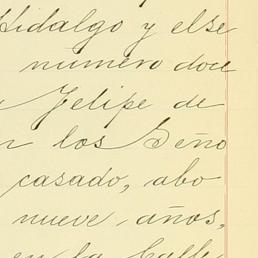 Hidalgo y el se
número doce
Felipe de
n los Seño
casado, abo
nueve años,
en la Calle